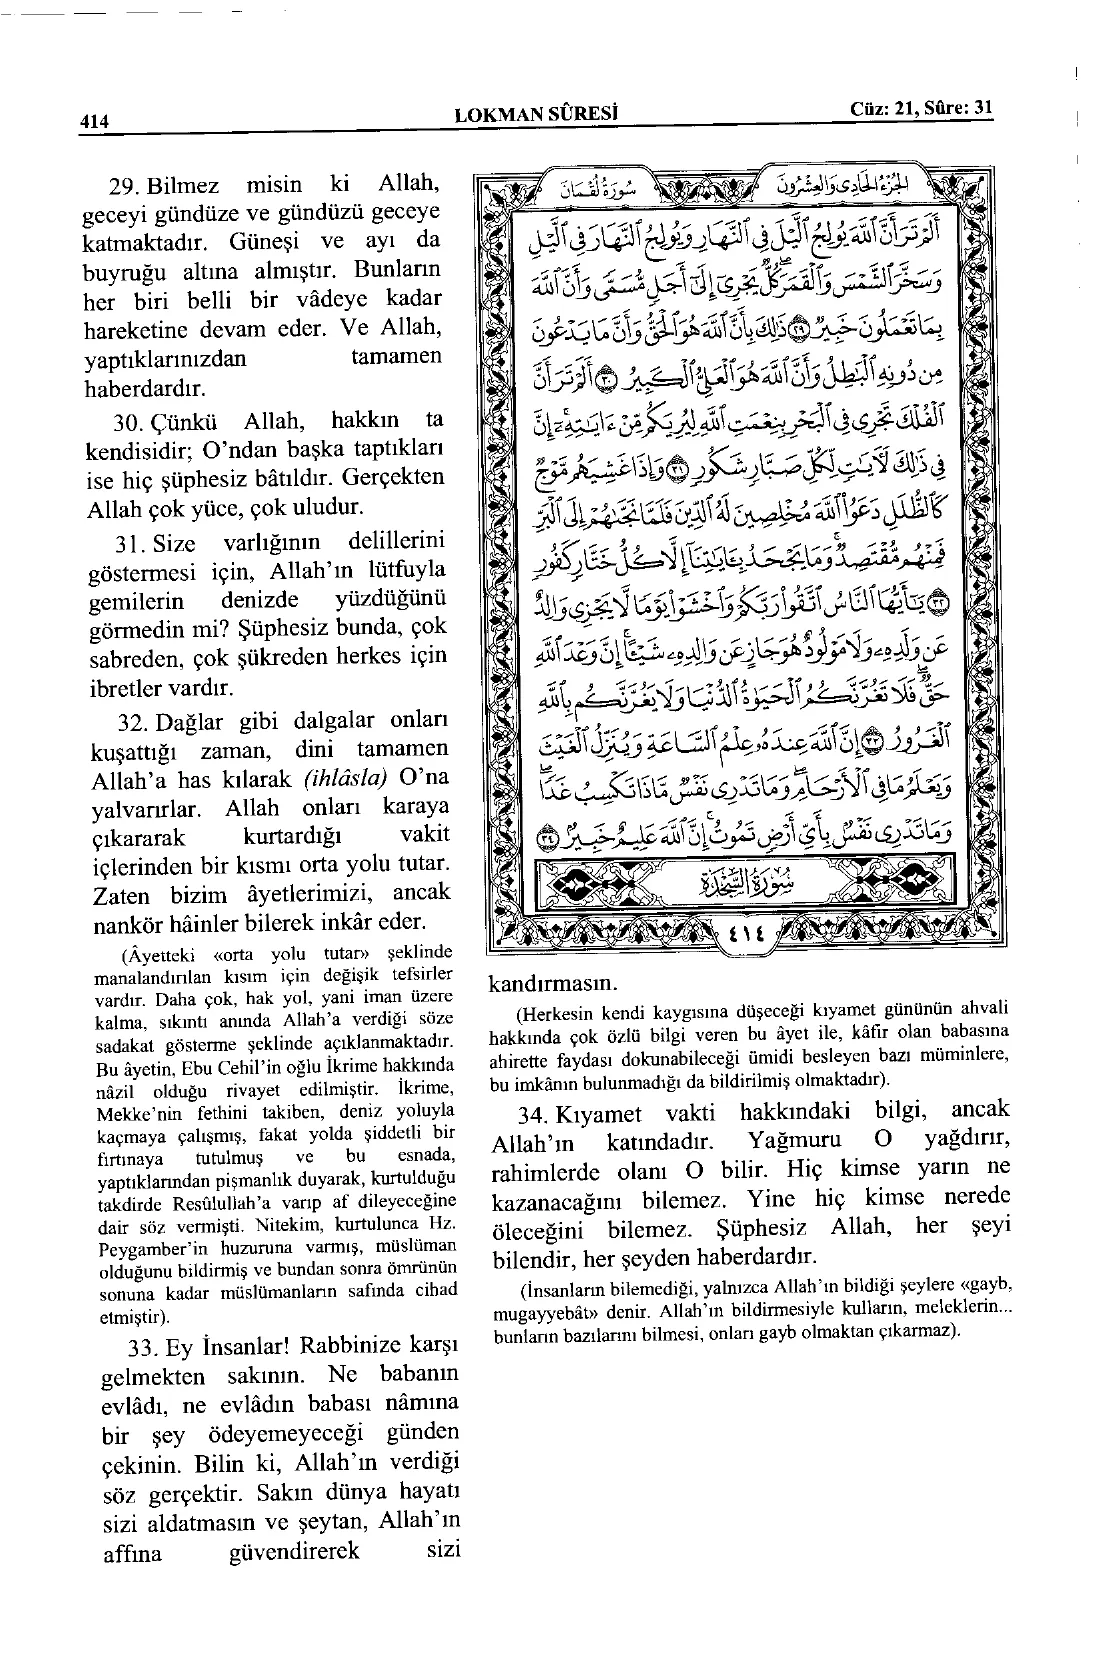 414
LOKMAN SÛRESİ
Cüz: 21, Sûre: 31
29. Bilmez misin ki Allah,
geceyi gündüze ve gündüzü geceye
katmaktadır. Güneşi ve ayı da
buyruğu altına almıştır. Bunların
her biri belli bir vâdeye kadar
hareketine devam eder. Ve Allah,
yaptıklarınızdan tamamen
haberdardır.
30. Çünkü Allah, hakkın ta
kendisidir; O'ndan başka taptıkları
ise hiç şüphesiz bâtıldır. Gerçekten
Allah çok yüce, çok uludur.
31. Size varlığının delillerini
göstermesi için, Allah'ın lütfuyla
gemilerin denizde yüzdüğünü
görmedin mi? Şüphesiz bunda, çok
sabreden, çok şükreden herkes için
ibretler vardır.
32. Dağlar gibi dalgalar onları
kuşattığı zaman, dini tamamen
Allah'a has kılarak (ihlâsla) O'na
yalvarırlar. Allah onları karaya
çıkararak kurtardığı vakit
içlerinden bir kısmı orta yolu tutar.
Zaten bizim âyetlerimizi, ancak
nankör hâinler bilerek inkâr eder.
(Âyetteki «orta yolu tutar» şeklinde
manalandırılan kısım için değişik tefsirler
vardır. Daha çok, hak yol, yani iman üzere
kalma, sıkıntı anında Allah'a verdiği söze
sadakat gösterme şeklinde açıklanmaktadır.
Bu âyetin, Ebu Cehil'in oğlu İkrime hakkında
nâzil olduğu rivayet edilmiştir. İkrime,
Mekke'nin fethini takiben, deniz yoluyla
kaçmaya çalışmış, fakat yolda şiddetli bir
fırtınaya tutulmuş ve bu esnada,
yaptıklarından pişmanlık duyarak, kurtulduğu
takdirde Resûlullah'a varıp af dileyeceğine
dair söz vermişti. Nitekim, kurtulunca Hz.
Peygamber'in huzuruna varmış, müslüman
olduğunu bildirmiş ve bundan sonra ömrünün
sonuna kadar müslümanların safında cihad
etmiştir).
33. Ey İnsanlar! Rabbinize karşı
gelmekten sakının. Ne babanın
evlâdı, ne evlâdın babası nâmına
bir şey ödeyemeyeceği günden
çekinin. Bilin ki, Allah'ın verdiği
söz gerçektir. Sakın dünya hayatı
sizi aldatmasın ve şeytan, Allah'ın
affına güvendirerek sizi
الجزء الحادى والعشرون
سورة لقمان
أَلَمْ تَرَ أَنَّ ٱللَّهَ يُولِجُ ٱلَّيْلَ فِى ٱلنَّهَارِ وَيُولِجُ ٱلنَّهَارَ فِى ٱلَّيْلِ
وَسَخَّرَ ٱلشَّمْسَ وَٱلْقَمَرَ كُلٌّ يَجْرِىٓ إِلَىٰٓ أَجَلٍ مُّسَمًّى وَأَنَّ ٱللَّهَ
بِمَا تَعْمَلُونَ خَبِيرٌ ٢٩ ذَٰلِكَ بِأَنَّ ٱللَّهَ هُوَ ٱلْحَقُّ وَأَنَّ مَا يَدْعُونَ
مِن دُونِهِ ٱلْبَٰطِلُ وَأَنَّ ٱللَّهَ هُوَ ٱلْعَلِىُّ ٱلْكَبِيرُ ٣٠ أَلَمْ تَرَ أَنَّ
ٱلْفُلْكَ تَجْرِى فِى ٱلْبَحْرِ بِنِعْمَتِ ٱللَّهِ لِيُرِيَكُم مِّنْ ءَايَٰتِهِۦٓ إِنَّ
فِى ذَٰلِكَ لَءَايَٰتٍ لِّكُلِّ صَبَّارٍ شَكُورٍ ٣١ وَإِذَا غَشِيَهُم مَّوْجٌ
كَٱلظُّلَلِ دَعَوُا۟ ٱللَّهَ مُخْلِصِينَ لَهُ ٱلدِّينَ فَلَمَّا نَجَّىٰهُمْ إِلَى ٱلْبَرِّ
فَمِنْهُم مُّقْتَصِدٌ وَمَا يَجْحَدُ بِـَٔايَٰتِنَآ إِلَّا كُلُّ خَتَّارٍ كَفُورٍ
٣٢ يَٰٓأَيُّهَا ٱلنَّاسُ ٱتَّقُوا۟ رَبَّكُمْ وَٱخْشَوْا۟ يَوْمًا لَّا يَجْزِى وَالِدٌ
عَن وَلَدِهِۦ وَلَا مَوْلُودٌ هُوَ جَازٍ عَن وَالِدِهِۦ شَيْـًٔا إِنَّ وَعْدَ ٱللَّهِ
حَقٌّ فَلَا تَغُرَّنَّكُمُ ٱلْحَيَوٰةُ ٱلدُّنْيَا وَلَا يَغُرَّنَّكُم بِٱللَّهِ
ٱلْغَرُورُ ٣٣ إِنَّ ٱللَّهَ عِندَهُۥ عِلْمُ ٱلسَّاعَةِ وَيُنَزِّلُ ٱلْغَيْثَ
وَيَعْلَمُ مَا فِى ٱلْأَرْحَامِ وَمَا تَدْرِى نَفْسٌ مَّاذَا تَكْسِبُ غَدًا
وَمَا تَدْرِى نَفْسٌۢ بِأَىِّ أَرْضٍ تَمُوتُ إِنَّ ٱللَّهَ عَلِيمٌ خَبِيرٌ ٣٤
سورة السجدة
٤١٤
kandırmasın.
(Herkesin kendi kaygısına düşeceği kıyamet gününün ahvali
hakkında çok özlü bilgi veren bu âyet ile, kâfir olan babasına
ahirette faydası dokunabileceği ümidi besleyen bazı müminlere,
bu imkânın bulunmadığı da bildirilmiş olmaktadır).
34. Kıyamet vakti hakkındaki bilgi, ancak
Allah'ın katındadır. Yağmuru O yağdırır,
rahimlerde olanı O bilir. Hiç kimse yarın ne
kazanacağını bilemez. Yine hiç kimse nerede
öleceğini bilemez. Şüphesiz Allah, her şeyi
bilendir, her şeyden haberdardır.
(İnsanların bilemediği, yalnızca Allah'ın bildiği şeylere «gayb,
mugayyebât» denir. Allah'ın bildirmesiyle kulların, meleklerin...
bunların bazılarını bilmesi, onları gayb olmaktan çıkarmaz).